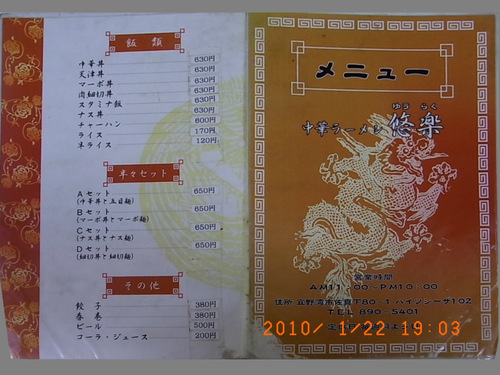 飯類
中華丼 630円
天津丼 630円
マーボ丼 630円
肉細切丼 630円
スタミナ飯 630円
ナス丼 630円
チャーハン 600円
ライス 170円
ネライス 120円
半々セット
Aセット 650円
(中華丼と五目麺)
Bセット 650円
(マーボ丼とマーボ麺)
Cセット 650円
(ナス丼とナス麺)
Dセット 650円
(細切丼と細切麺)
その他
餃子 380円
春巻 380円
ビール 500円
コーラ・ジュース 200円
メニュー
ゆう らく
中華ラーメン 悠楽
営業時間
AM11:00〜PM10:00
住所 宜野湾市佐真下80-1 ハイツシーサ102
TEL 890-5401
2010/ 1/22 19:03